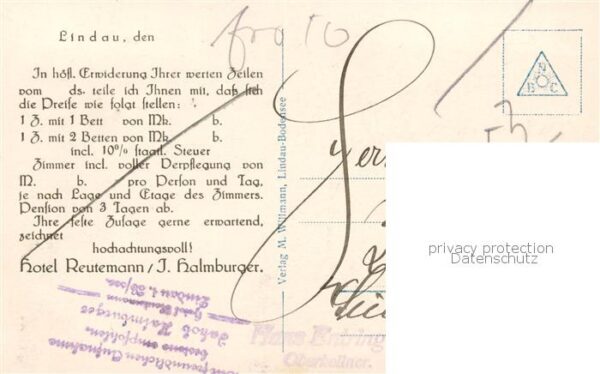 Lindau, den
In höfl. Erwiderung Ihrer werten Zeilen
vom ds. teile ich Ihnen mit, daß sich
die Preise wie folgt stellen:
1 Z. mit 1 Bett von Mk. b.
1 Z. mit 2 Betten von Mk. b.
incl. 10% staatl. Steuer
Zimmer incl. voller Verpflegung von
M. b. pro Person und Tag,
je nach Lage und Etage des Zimmers.
Pension von 3 Tagen ab.
Ihre feste Zusage gerne erwartend,
zeichnet
hochachtungsvoll!
Hotel Reutemann / J. Halmburger.
Verlag M. Willmann, Lindau-Bodensee
N
B C
privacy protection
Datenschutz
freundlichen Aufnahme
bestens empfohlen
Jakob Halmburger
Hotel Reutemann
Lindau i. B/see
Hans
Oberkellner.